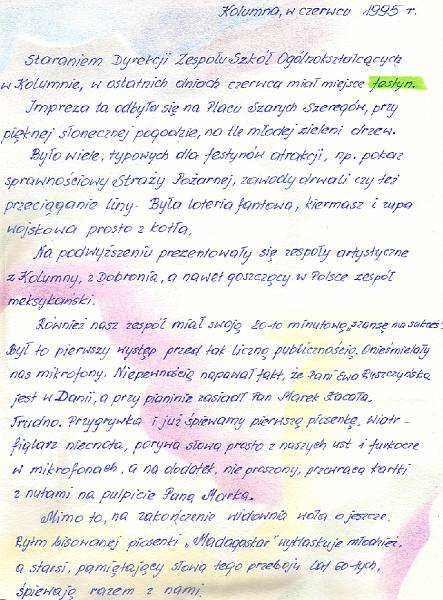 Kolumna, w czerwcu 1995 r.
Staraniem Dyrekcji Zespołu Szkół Ogólnokształcących
w Kolumnie, w ostatnich dniach czerwca miał miejsce festyn.
Impreza ta odbyła się na Placu Szarych Szeregów, przy
pięknej słonecznej pogodzie, na tle młodej zieleni drzew.
Było wiele, typowych dla festynów atrakcji, np. pokaz
sprawnościowy Straży Pożarnej, zawody drwali czy też
przeciąganie liny. Była loteria fantowa, kiermasz i zupa
wojskowa prosto z kotła.
Na podwyższeniu prezentowały się zespoły artystyczne
z Kolumny, z Dobronia, a nawet goszczący w Polsce zespół
meksykański.
Również nasz zespół miał swoją 20-to minutową „szansę na sukces"!
Był to pierwszy występ przed tak liczną publicznością. Onieśmielały
nas mikrofony. Niepewnością napawał fakt, że Pani Ewa Ryszczyńska
jest w Danii, a przy pianinie zasiadł Pan Marek Kacała.
Trudno. Przygrywka i już śpiewamy pierwszą piosenkę. Wiatr -
figlarz niecnota, porywa słowa prosto z naszych ust i furkocze
w mikrofonach, a na dodatek, nie proszony, przewraca kartki
z nutami na pulpicie Pana Marka.
Mimo to, na zakończenie widownia woła o jeszcze.
Rytm bisowanej piosenki „Madagaskar" wyklaskuje młodzież,
a starsi, pamiętający słowa tego przeboju lat 60-tych,
śpiewają razem z nami.